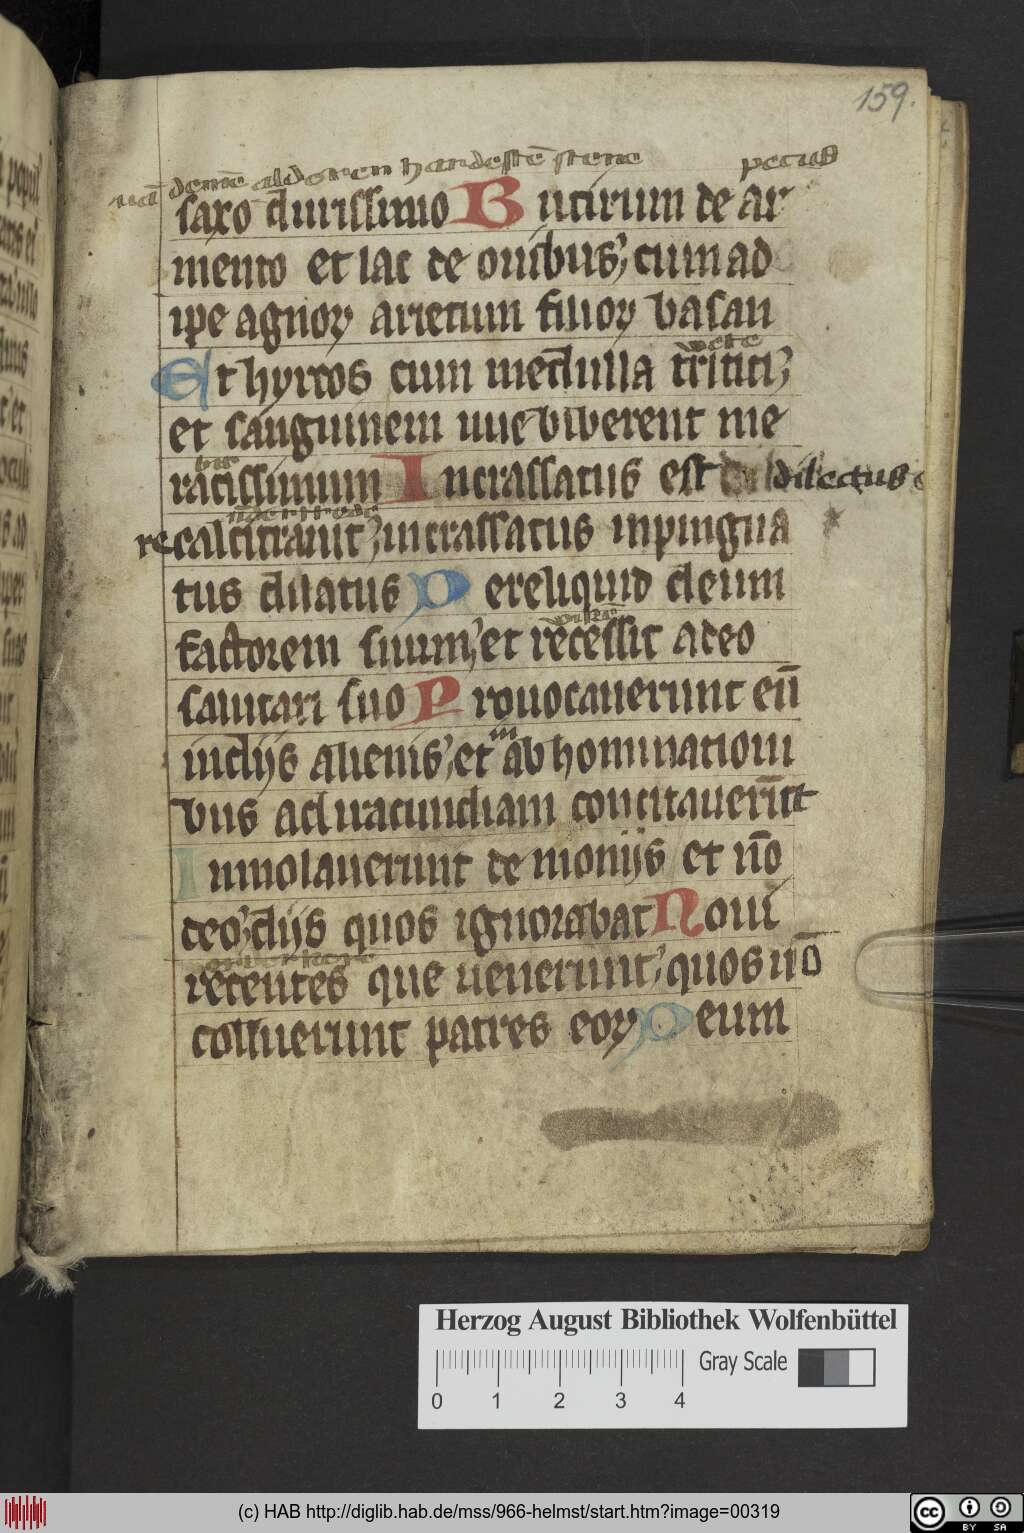 159.
vā deme alder en hardestē stene pecus
saxo durissimo Butirum de ar
mento et lac de ouibus, cum ad
ipe agnoꝝ arietum filioꝝ basan
Et hyrcos cum medulla tritici,
et sanguinem uue biberent me
racissimum Incrassatus est dilectus
recalcitrauit, incrassatus inpingua
tus dilatus Dereliquid deum
factorem suum, et recessit a deo
salutari suo Prouocauerunt eū
in diis alienis, et in abhominationi
bus ad iracundiam concitauerūt
Inmolauerunt demoniis et nō
deo, diis quos ignorabat Noui
recentes que uenerunt, quos nō
coluerunt patres eoꝝ Deum
Herzog August Bibliothek Wolfenbüttel
0 1 2 3 4 Gray Scale
(c) HAB http://diglib.hab.de/mss/966-helmst/start.htm?image=00319
cc BY SA